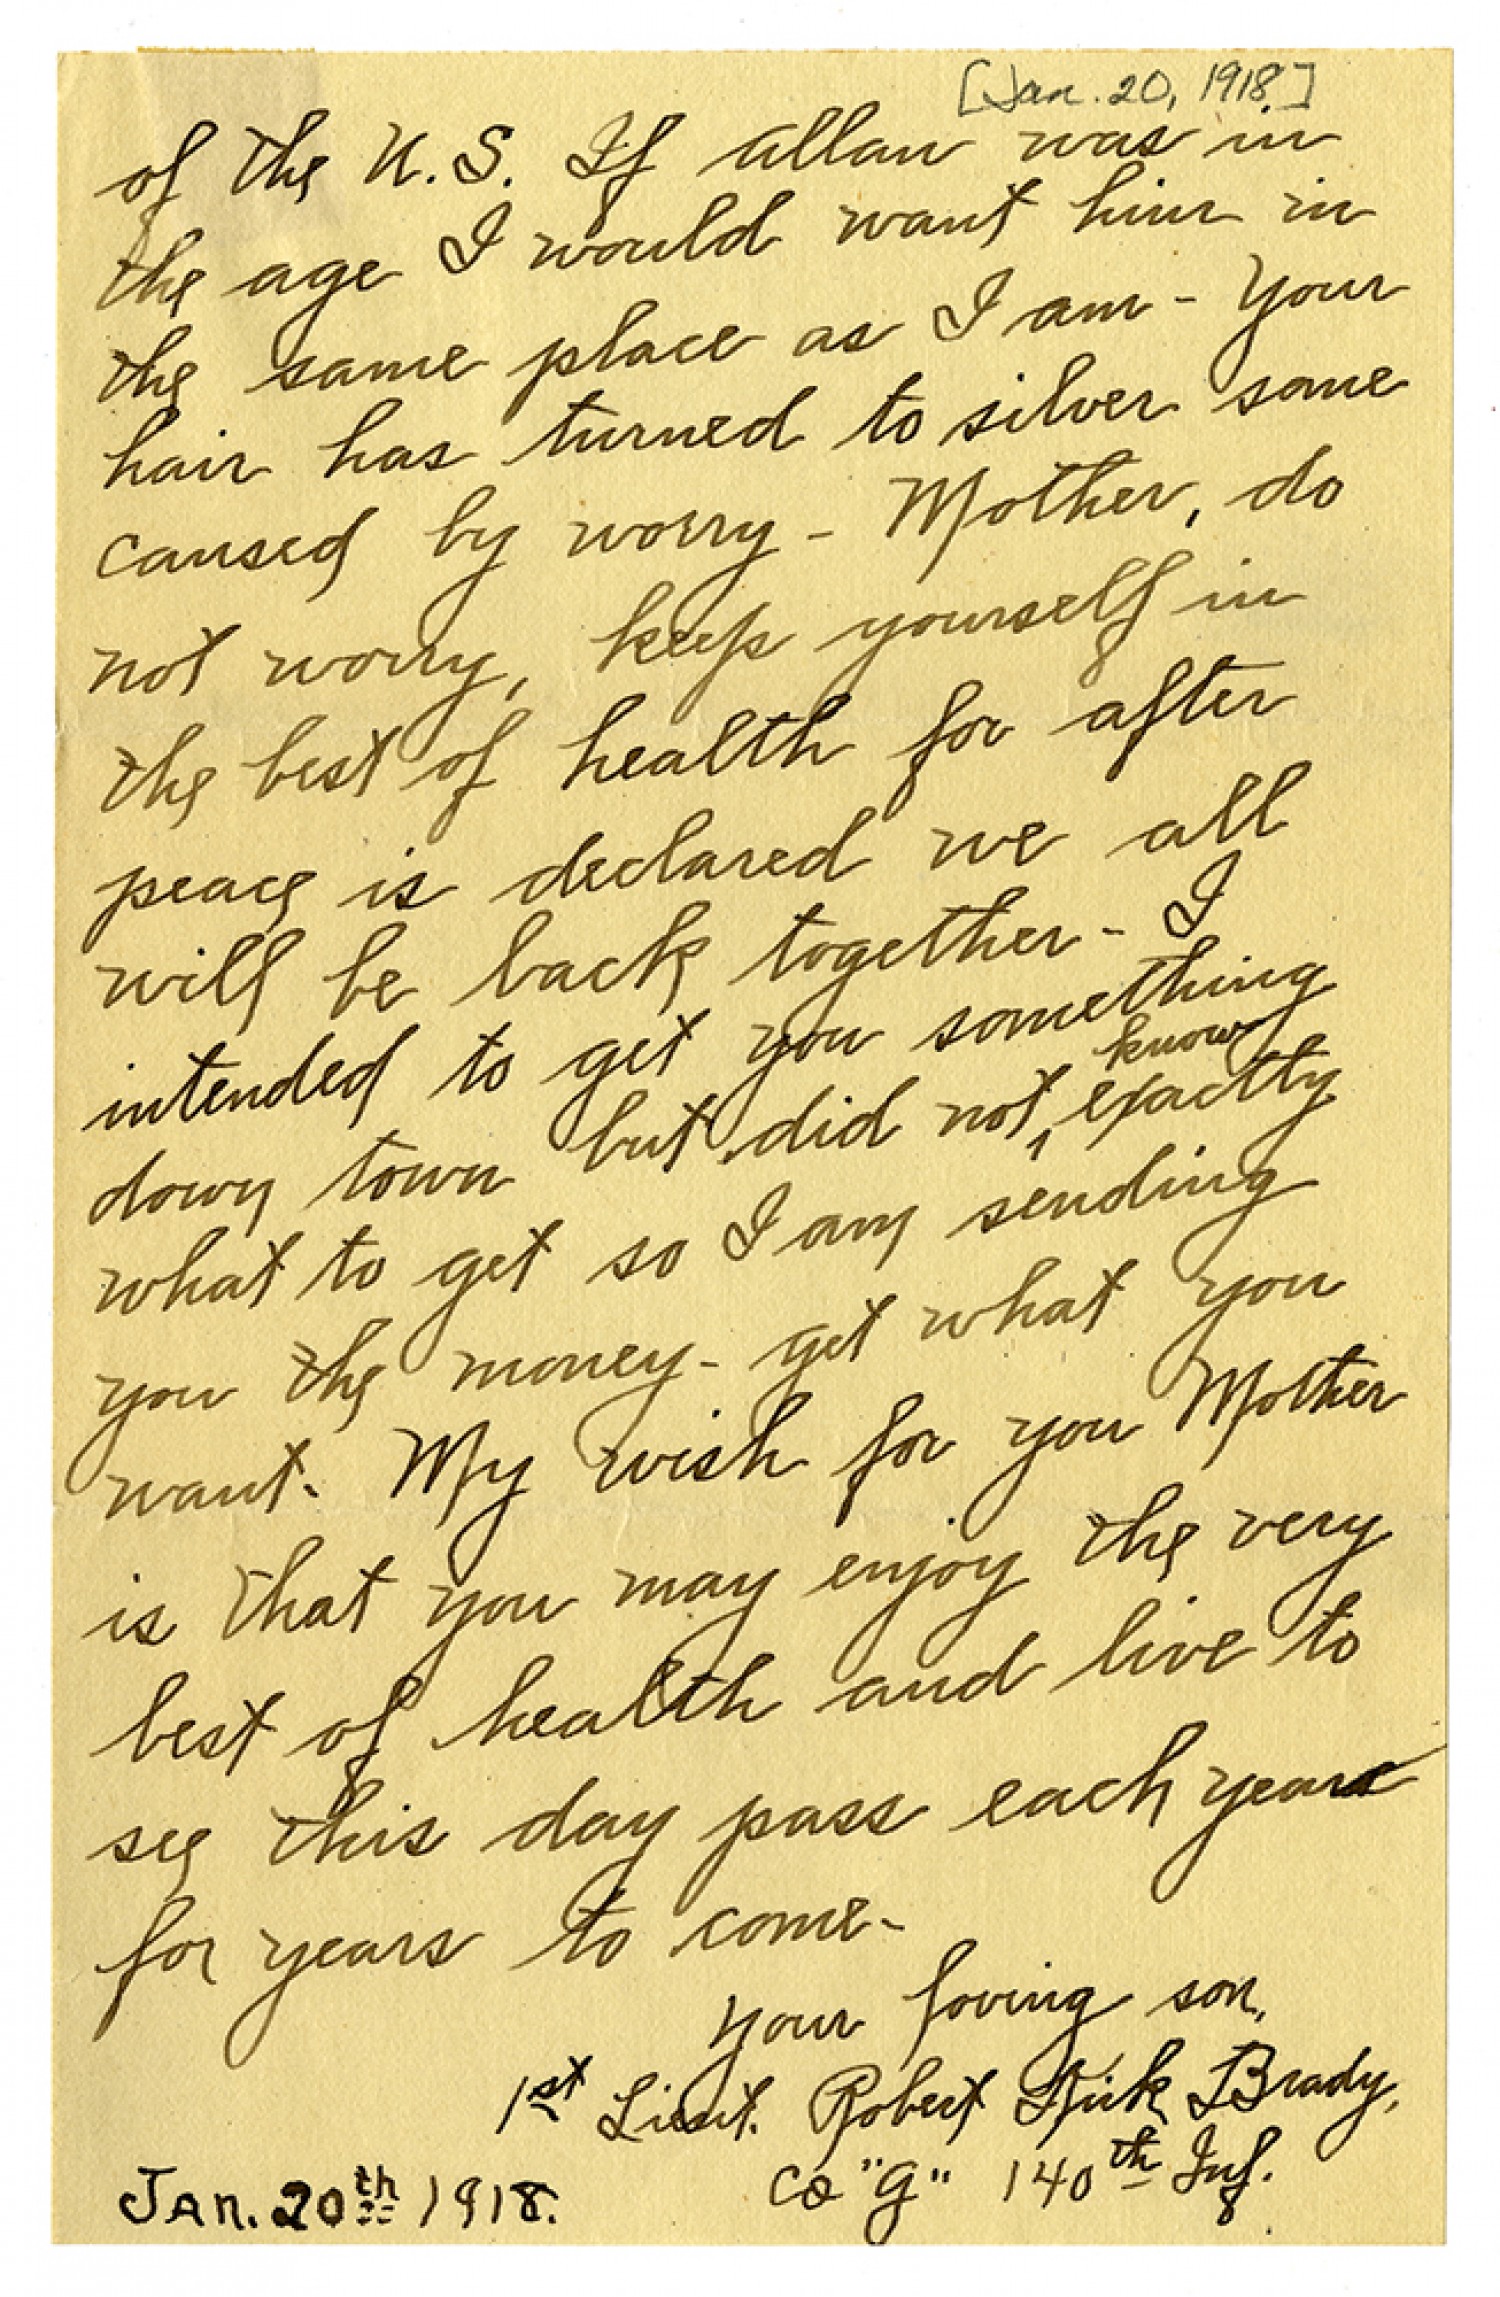 [Jan. 20, 1918]
of the U.S. If Allan was in
the age I would want him in
the same place as I am - Your
hair has turned to silver some
caused by worry - Mother, do
not worry, keep yourself in
the best of health for after
peace is declared we all
will be back together - I
intended to get you something
down town but did not know exactly
what to get so I am sending
you the money - get what you
want. My wish for you Mother
is that you may enjoy the very
best of health and live to
see this day pass each year
for years to come -
Your loving son,
1st Lieut. Robert Brady,
Co "G" 140th Inf.
Jan. 20th 1918.